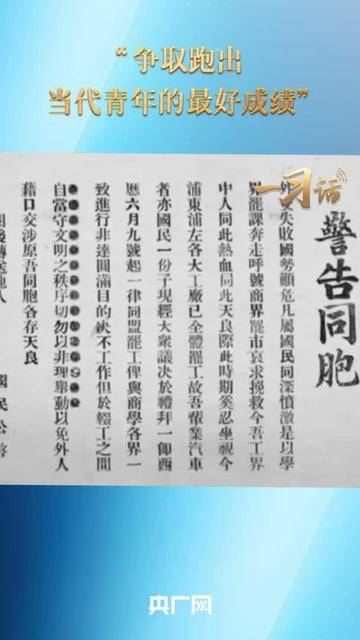 “争取跑出
当代青年的最好成绩”
一习话
警告同胞
外交失败國勢顚危凡屬國民同深憤激是以學
界罷課奔走呼號商界罷市哀求挽救今吾工界
中人同此熱血同此天良際此時期奚忍坐視今
浦東浦左各大工廠已全體罷工故吾輩業汽車
者亦國民一份子現經大衆議决於禮拜一卽西
曆六月九號起一律同盟罷工俾與商學各界一
致進行非達圓滿目的决不工作但於輟工之間
自當守文明之秩序切勿以非理擧動以免外人
藉口交涉原吾同胞各存天良
閱後轉送他人 國民公啓
央广网